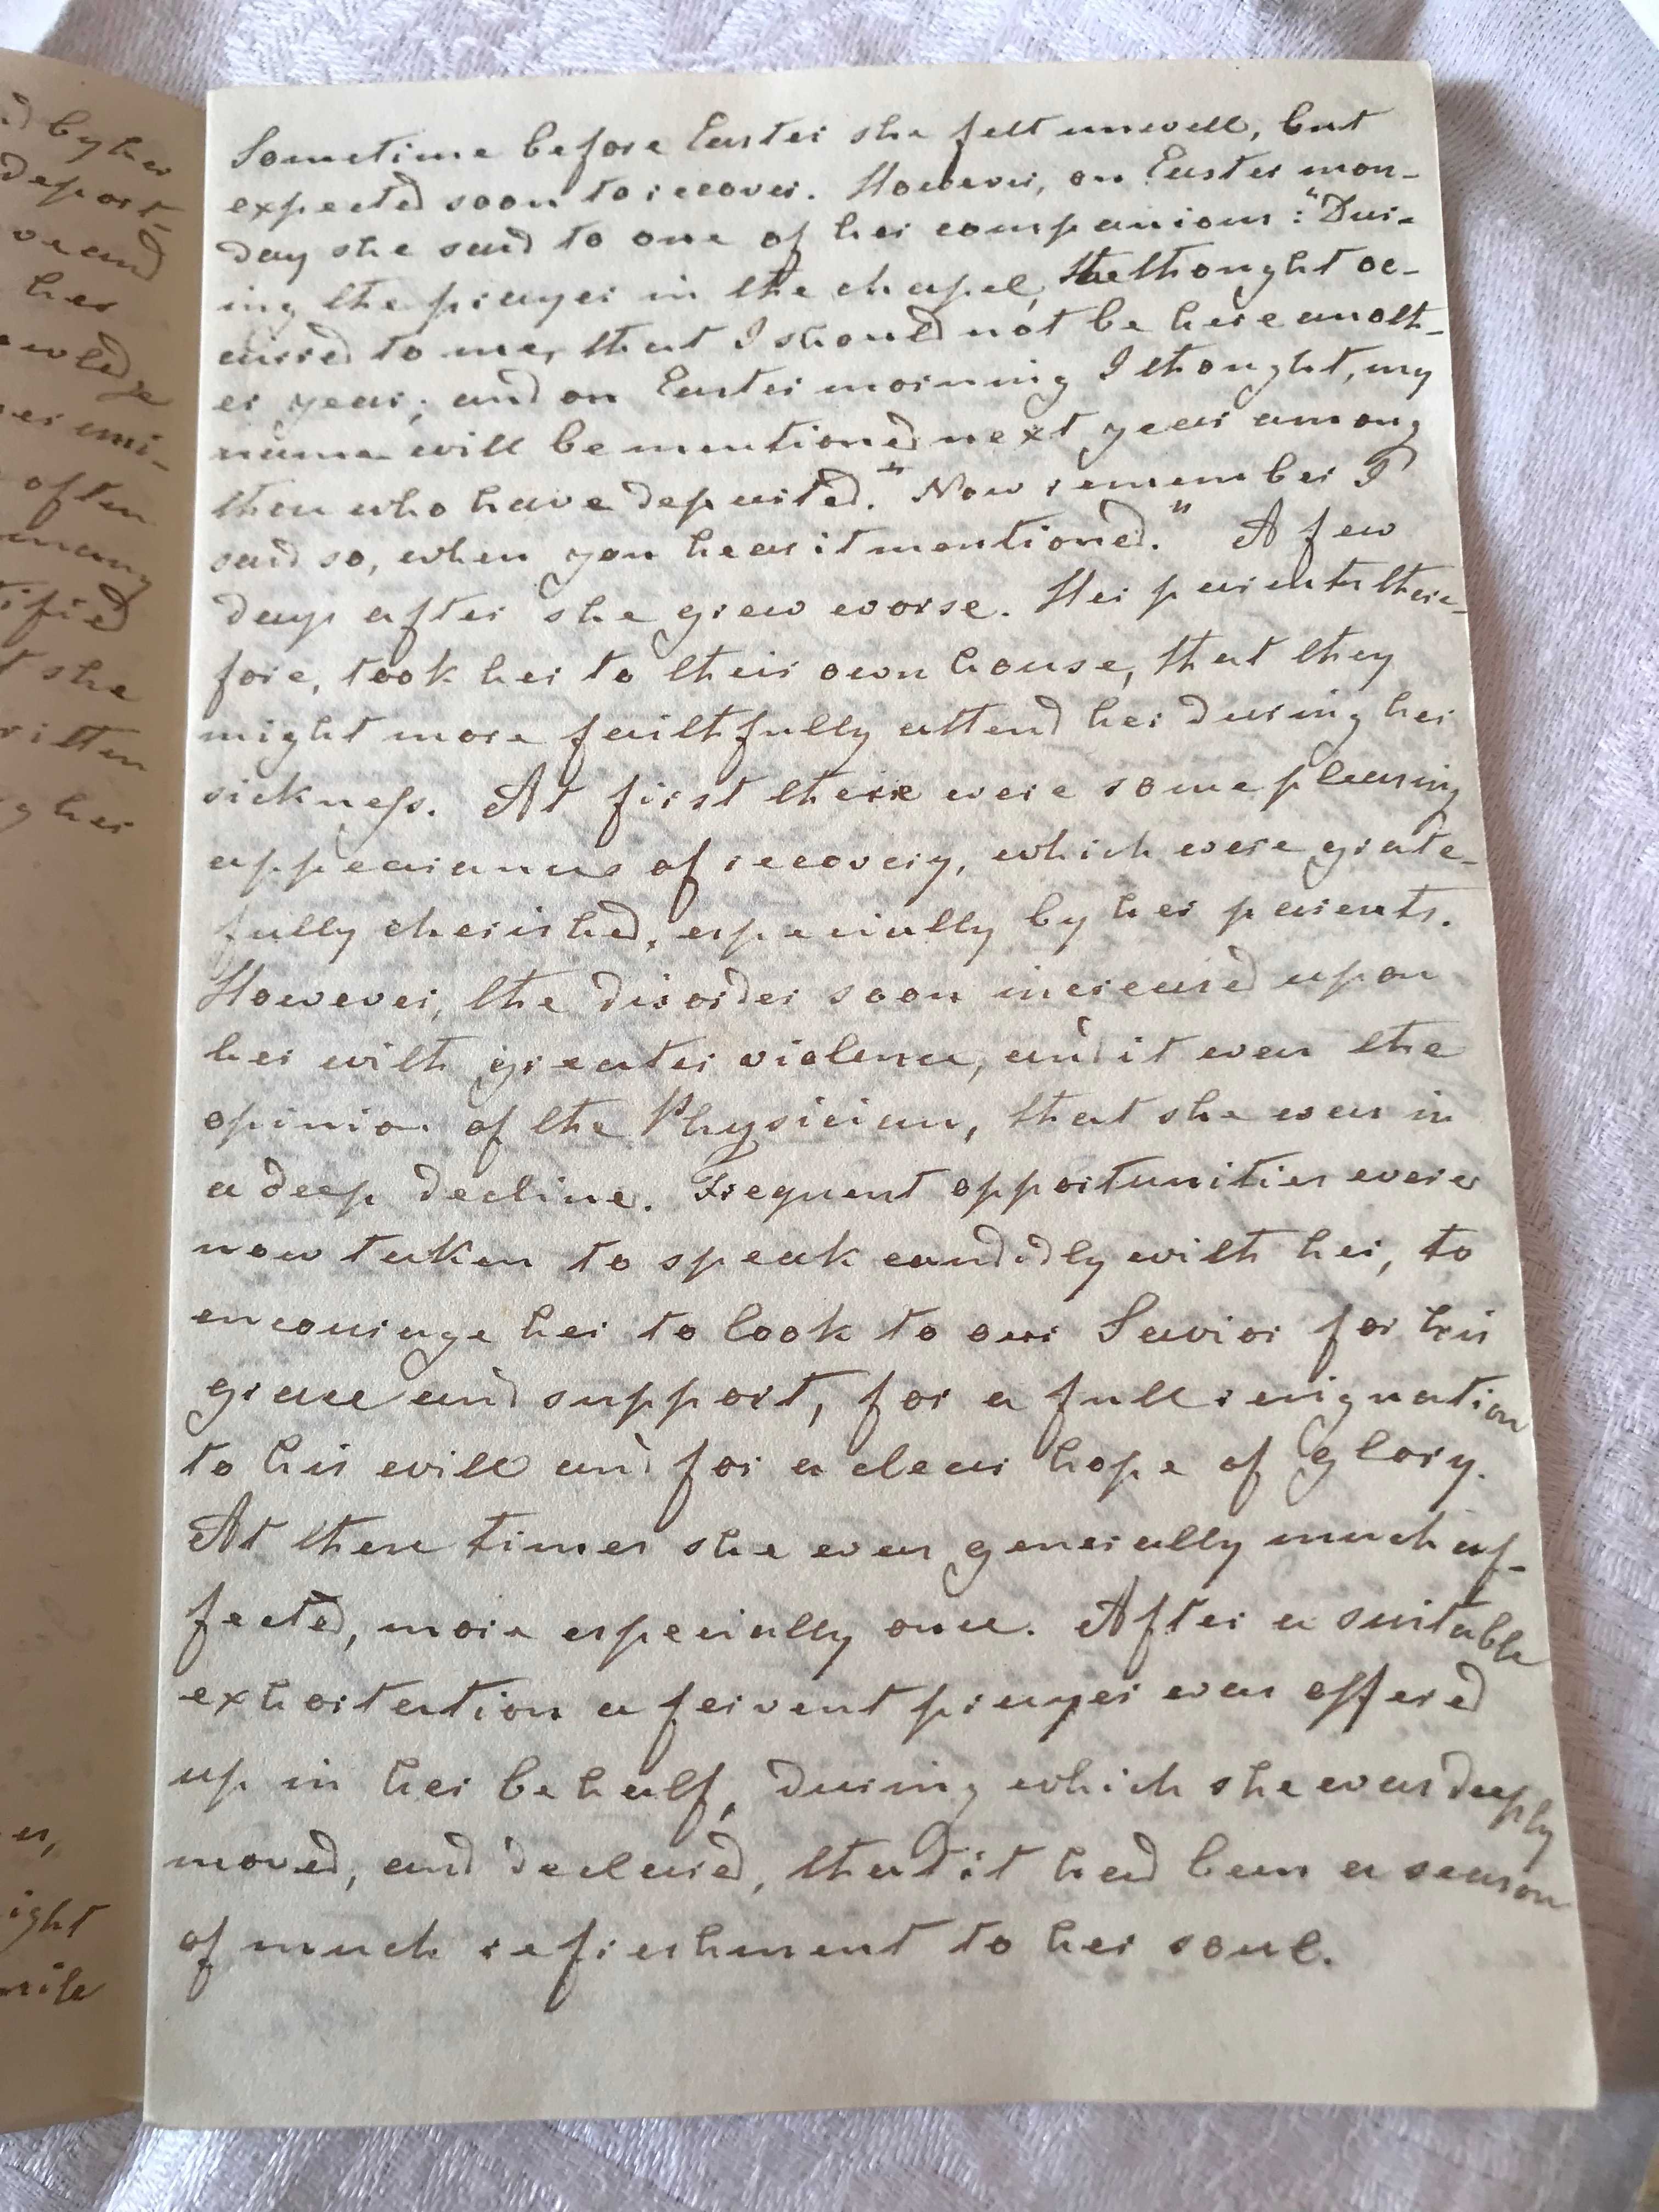 d by her
deport-
ve and
her
owledge
er uni-
often
many
tified
t she
ritten
g her
es,
ight
mile
Sometime before Easter she felt unwell, but
expected soon to recover. However, on Easter mon-
day she said to one of her companions: "Dur-
ing the prayer in the chapel, the thought oc-
curred to me, that I should not be here anoth-
er year; and on Easter morning I thought, my
name will be mentioned next year among
those who have departed." Now remember I
said so, when you hear it mentioned." A few
days after she grew worse. Her parents there-
fore, took her to their own house, that they
might more faithfully attend her during her
sickness. At first there were some pleasing
appearances of recovery, which were grate-
fully cherished, especially by her parents.
However, the disorder soon increased upon
her with greater violence, and it was the
opinion of the Physician, that she was in
a deep decline. Frequent opportunities were
now taken to speak candidly with her, to
encourage her to look to our Savior for his
grace and support, for a full resignation
to his will and for a clear hope of glory.
At these times she was generally much af-
fected, more especially once. After a suitable
exhortation a fervent prayer was offered
up in her behalf, during which she was deeply
moved, and declared, that it had been a season
of much refreshment to her soul.